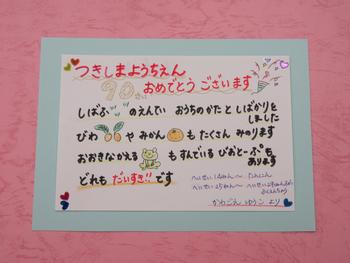 つきしまようちえん
90さい
おめでとう ございます
しばふ のえんてい おうちのかた と しばかりを
しました
びわ や みかん も たくさん みのります
おおきなかえる も すんでいる びおとーぷも
あります
どれも だいすき!! です
へいせい14ねん〜
へいせい25ねん〜
かわごえ ゆうこ より